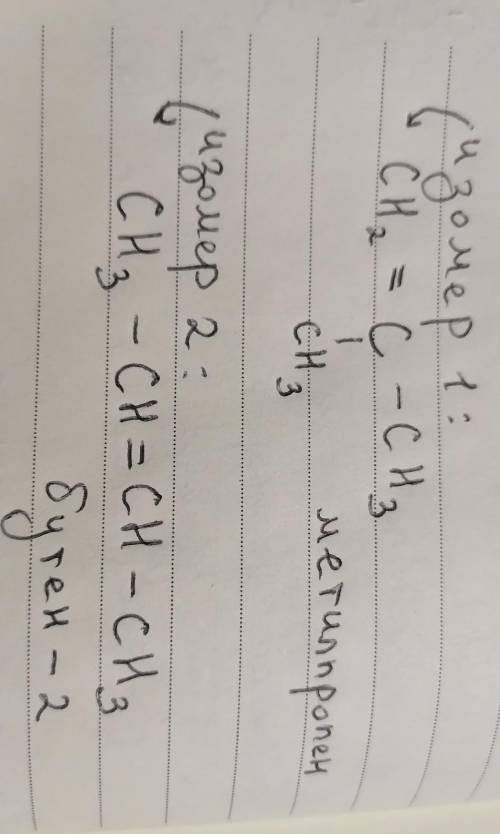 изомер 1:
CH₂ = C - CH₃
CH₃
метилпропен
изомер 2:
CH₃ - CH = CH - CH₃
бутен - 2